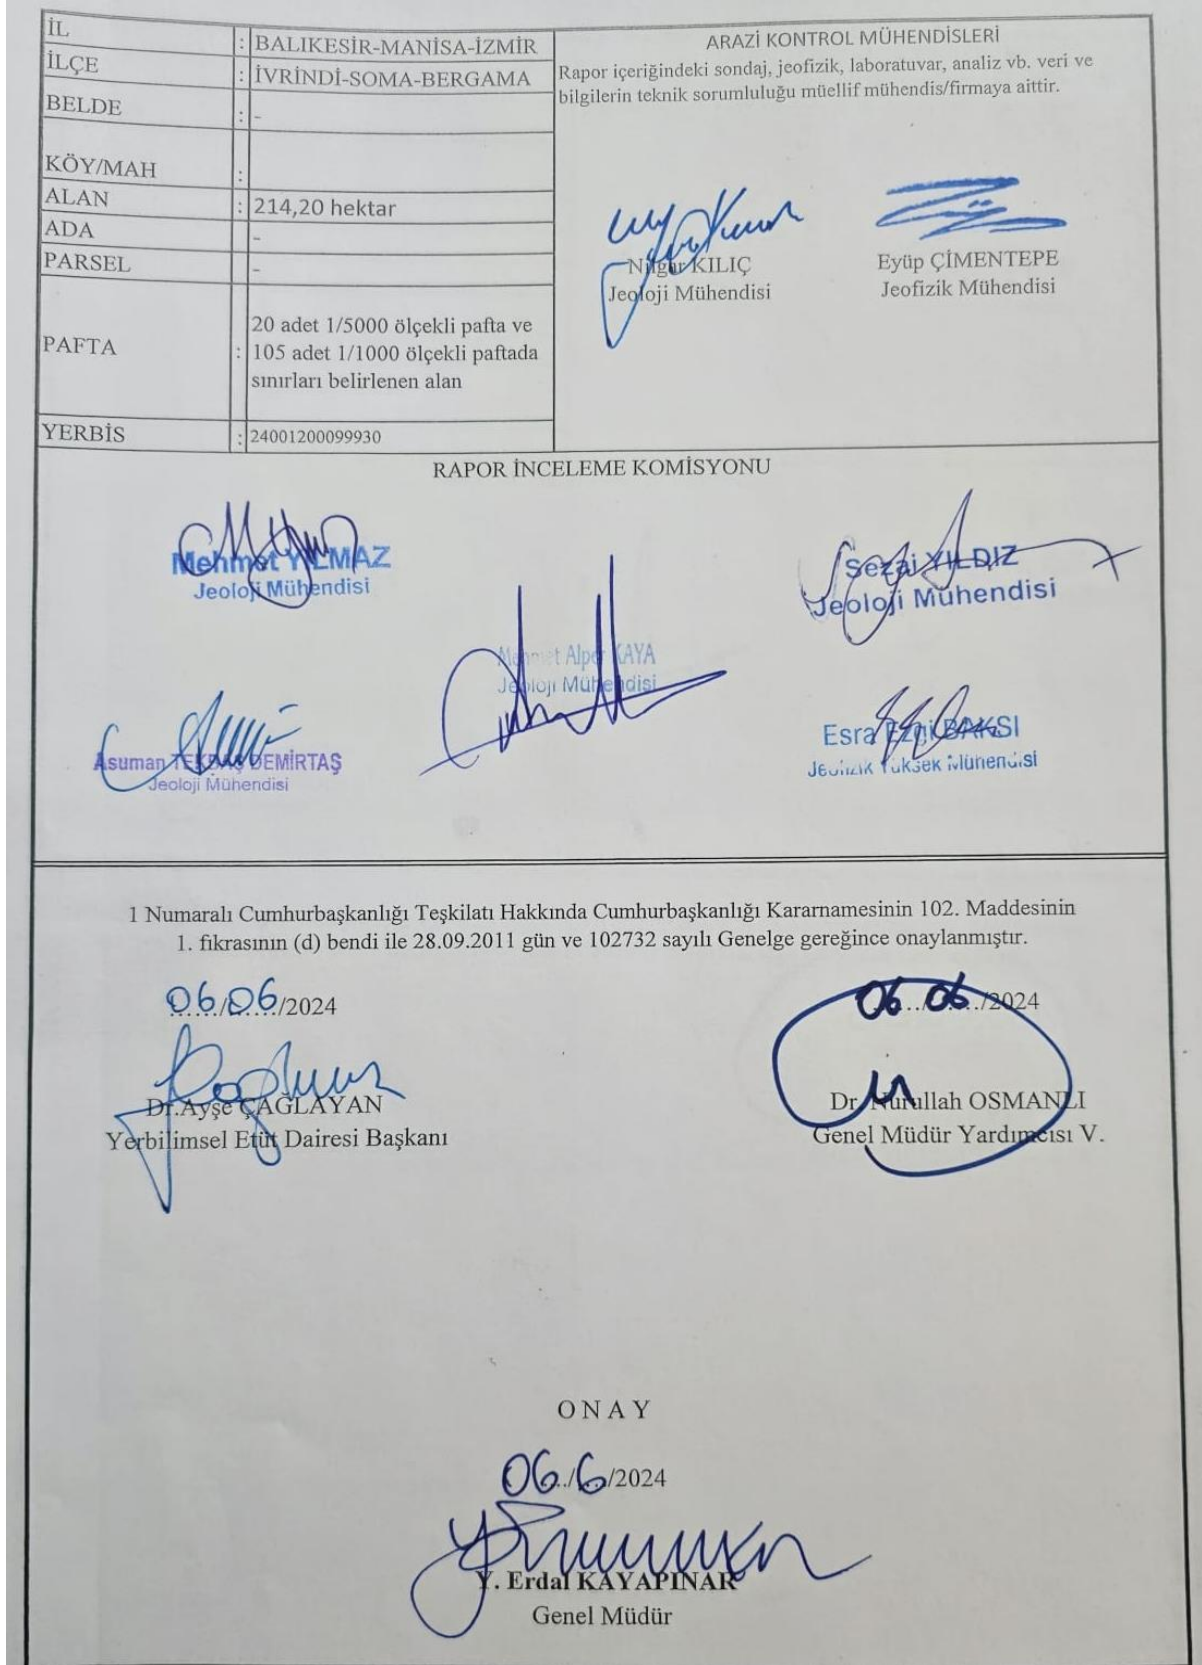 İL : BALIKESİR-MANİSA-İZMİR
İLÇE : İVRİNDİ-SOMA-BERGAMA
BELDE : -
KÖY/MAH :
ALAN : 214,20 hektar
ADA -
PARSEL -
PAFTA : 20 adet 1/5000 ölçekli pafta ve
105 adet 1/1000 ölçekli paftada
sınırları belirlenen alan
YERBİS : 24001200099930
ARAZİ KONTROL MÜHENDİSLERİ
Rapor içeriğindeki sondaj, jeofizik, laboratuvar, analiz vb. veri ve
bilgilerin teknik sorumluluğu müellif mühendis/firmaya aittir.
Nilgür KILIÇ
Jeoloji Mühendisi
Eyüp ÇİMENTEPE
Jeofizik Mühendisi
RAPOR İNCELEME KOMİSYONU
Mehmet YILMAZ
Jeoloji Mühendisi
Sezai YILDIZ
Jeoloji Mühendisi
Mehmet Alper KAYA
Jeoloji Mühendisi
Asuman TEKBAŞ DEMİRTAŞ
Jeoloji Mühendisi
Esra Ezgi BAKSI
Jeofizik Yüksek Mühendisi
1 Numaralı Cumhurbaşkanlığı Teşkilatı Hakkında Cumhurbaşkanlığı Kararnamesinin 102. Maddesinin
1. fıkrasının (d) bendi ile 28.09.2011 gün ve 102732 sayılı Genelge gereğince onaylanmıştır.
06/06/2024
Dr.Ayşe ÇAĞLAYAN
Yerbilimsel Etüt Dairesi Başkanı
06/06/2024
Dr. Nurullah OSMANLI
Genel Müdür Yardımcısı V.
O N A Y
06/6/2024
Y. Erdal KAYAPINAR
Genel Müdür